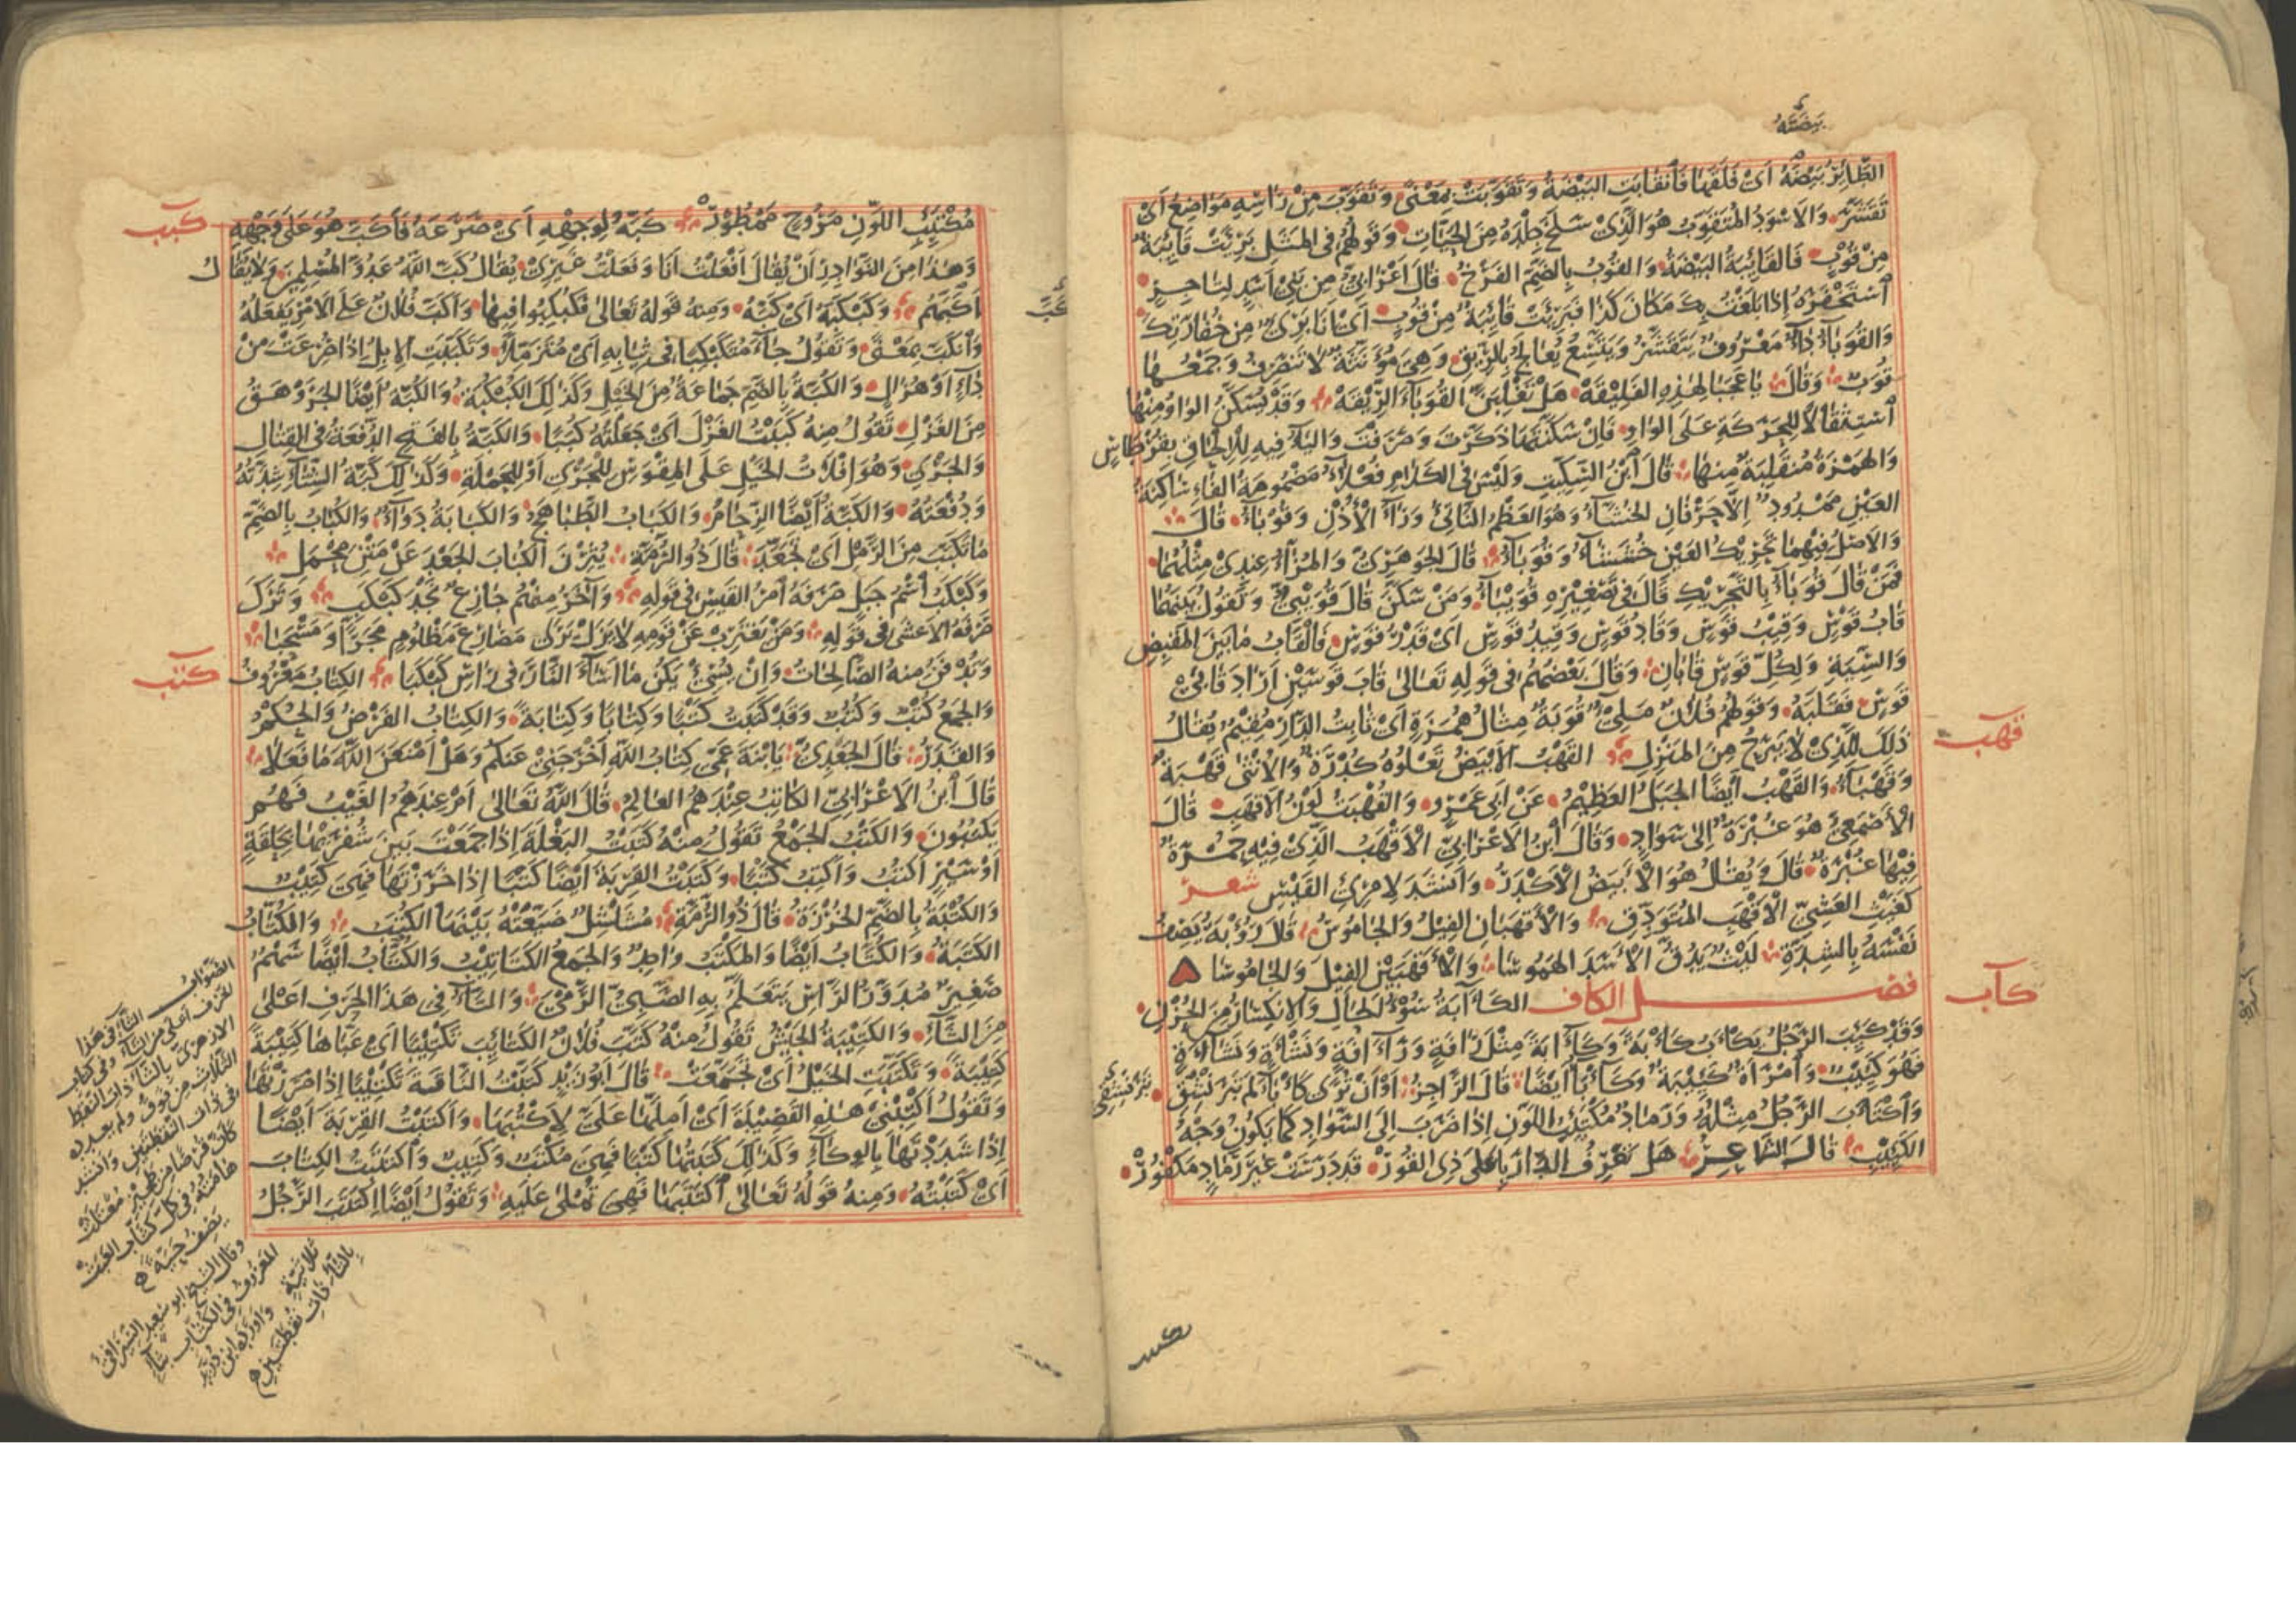 بيضته
الطَّائِرُ بَيْضَهُ أَيْ فَلَقَهَا فَانْقَابَتِ البَيْضَةُ وَتَقَوَّبَتْ بِمَعْنًى وَتَقَوَّبَ مِنْ رَأْسِهِ مَوَاضِعُ أَيْ
تَقَشَّرَ وَالأَسْوَدُ المُتَقَوِّبُ هُوَ الَّذِي سَلَخَ جِلْدَهُ مِنَ الحَيَّاتِ وَقَوْلُهُمْ فِي المَثَلِ بَرِئَتْ قَائِبَةٌ
مِنْ قُوبٍ فَالقَائِبَةُ البَيْضَةُ وَالقُوبُ بِالضَّمِّ الفَرْخُ قَالَ أَعْرَابِيٌّ مِنْ بَنِي أَسَدٍ لِتَاجِرٍ
اسْتَخْفَرَهُ إِذَا بَلَغْتُ بِكَ مَكَانَ كَذَا فَبَرِئَتْ قَائِبَةٌ مِنْ قُوبٍ أَيْ أَنَا بَرِيءٌ مِنْ خِفَارَتِكَ
وَالقُوَبَاءُ دَاءٌ مَعْرُوفٌ يَتَقَشَّرُ وَيَتَّسِعُ يُعَالَجُ بِالرِّيقِ وَهِيَ مُؤَنَّثَةٌ لَا تَنْصَرِفُ وَجَمْعُهَا
قُوَبٌ وَقَالَ يَا عَجَبًا لِهَذِهِ الفَلِيقَهْ هَلْ تَغْلِبَنَّ القُوَبَاءُ الرِّيقَهْ وَقَدْ تُسَكَّنُ الوَاوُ مِنْهَا
اسْتِثْقَالًا لِلْحَرَكَةِ عَلَى الوَاوِ فَإِنْ سَكَّنْتَهَا ذَكَّرْتَ وَصَرَفْتَ وَاليَاءُ فِيهِ لِلْإِلْحَاقِ بِقُرْطَاسٍ
وَالهَمْزَةُ مُنْقَلِبَةٌ مِنْهَا قَالَ ابْنُ السِّكِّيتِ وَلَيْسَ فِي الكَلَامِ فُعْلَاءُ مَضْمُومَةَ الفَاءِ سَاكِنَةَ
العَيْنِ مَمْدُودٌ إِلَّا حَرْفَانِ الخُشَّاءُ وَهُوَ العَظْمُ النَّاتِئُ وَرَاءَ الأُذُنِ وَقُوبَاءُ قَالَ
وَالأَصْلُ فِيهِمَا تَحْرِيكُ العَيْنِ خُشَشَاءُ وَقُوَبَاءُ قَالَ الجَوْهَرِيُّ وَالمُزَّاءُ عِنْدِي مِثْلُهُمَا
فَمَنْ قَالَ قُوَبَاءُ بِالتَّحْرِيكِ قَالَ فِي تَصْغِيرِهِ قُوَيْبَاءُ وَمَنْ سَكَّنَ قَالَ قُوَيْبِيٌّ وَتَقُولُ بَيْنَهُمَا
قَابُ قَوْسٍ وَقِيبُ قَوْسٍ وَقَادُ قَوْسٍ وَقِيدُ قَوْسٍ أَيْ قَدْرُ قَوْسٍ فَالْقَابُ مَا بَيْنَ المَقْبِضِ
وَالسِّيَةِ وَلِكُلِّ قَوْسٍ قَابَانِ وَقَالَ بَعْضُهُمْ فِي قَوْلِهِ تَعَالَى قَابَ قَوْسَيْنِ أَرَادَ قَابَيْ
قَوْسٍ فَقَلَبَهُ وَقَوْلُهُمْ فُلَانٌ مَلِيءٌ قُوَبَةٌ مِثَالُ هُمَزَةٍ أَيْ ثَابِتُ الدَّارِ مُقِيمٌ يُقَالُ
ذَلِكَ لِلَّذِي لَا يَبْرَحُ مِنَ المَنْزِلِ القَهْبُ الأَبْيَضُ تَعْلُوهُ كُدْرَةٌ وَالأُنْثَى قَهْبَةٌ
قهب
وَقَهْبَاءُ وَالقَهْبُ أَيْضًا الجَبَلُ العَظِيمُ عَنْ أَبِي عَمْرٍو وَالقُهْبَةُ لَوْنُ الأَقْهَبِ قَالَ
الأَصْمَعِيُّ هُوَ غُبْرَةٌ إِلَى سَوَادٍ وَقَالَ ابْنُ الأَعْرَابِيِّ الأَقْهَبُ الَّذِي فِيهِ حُمْرَةٌ
فِيهَا غُبْرَةٌ قَالَ وَيُقَالُ هُوَ الأَبْيَضُ الأَكْدَرُ وَأَنْشَدَ لِامْرِئِ القَيْسِ شعر
كَغَيْثِ العَشِيِّ الأَقْهَبِ المُتَوَدِّقِ وَالأَقْهَبَانِ الفِيلُ وَالجَامُوسُ قَالَ رُؤْبَةُ يَصِفُ
نَفْسَهُ بِالشِّدَّةِ لَيْثٌ يَدُقُّ الأَسَدَ الهَمُوسَا وَالأَقْهَبَيْنِ الفِيلَ وَالجَامُوسَا
فصل الكاف الكَآبَةُ سُوءُ الحَالِ وَالانْكِسَارُ مِنَ الحُزْنِ
كأب
وَقَدْ كَئِبَ الرَّجُلُ يَكْأَبُ كَأْبَةً وَكَآبَةً مِثْلَ رَأْفَةٍ وَرَآفَةٍ وَنَشْأَةٍ وَنَشَاءَةٍ
فَهُوَ كَئِيبٌ وَامْرَأَةٌ كَئِيبَةٌ وَكَأْبَاءُ أَيْضًا قَالَ الرَّاجِزُ أَوْ أَنْ تُرَى كَأْبَاءَ لَمْ تَبْرَنْشِقِ
تبرنشقي
وَاكْتَأَبَ الرَّجُلُ مِثْلُهُ وَرَمَادٌ مُكْتَئِبُ اللَّوْنِ إِذَا ضَرَبَ إِلَى السَّوَادِ كَمَا يَكُونُ وَجْهُ
الكَئِيبِ قَالَ الشَّاعِرُ هَلْ تَعْرِفُ الدَّارَ بِأَعْلَى ذِي القُورْ قَدْ دَرَسَتْ غَيْرَ رَمَادٍ مَكْفُورْ
مُكْتَئِبِ اللَّوْنِ مَرُوحٍ مَمْطُورْ كَبَّهُ لِوَجْهِهِ أَيْ صَرَعَهُ فَأَكَبَّ هُوَ عَلَى وَجْهِهِ
كبب
وَهَذَا مِنَ النَّوَادِرِ أَنْ يُقَالَ أَفْعَلْتُ أَنَا وَفَعَلْتُ غَيْرِي يُقَالُ كَبَّ اللَّهُ عَدُوَّ المُسْلِمِينَ وَلَا يُقَالُ
أَكَبَّهُمْ وَكَبْكَبَهُ أَيْ كَبَّهُ وَمِنْهُ قَوْلُهُ تَعَالَى فَكُبْكِبُوا فِيهَا وَأَكَبَّ فُلَانٌ عَلَى الأَمْرِ يَفْعَلُهُ
وَانْكَبَّ بِمَعْنًى وَتَقُولُ جَاءَ مُتَكَبْكِبًا فِي ثِيَابِهِ أَيْ مُتَزَمِّلًا وَتَكَبَّبَتِ الإِبِلُ إِذَا صُرِعَتْ مِنْ
دَاءٍ أَوْ هُزَالٍ وَالكُبَّةُ بِالضَّمِّ جَمَاعَةٌ مِنَ الخَيْلِ وَكَذَلِكَ الكُبْكُبَةُ وَالكُبَّةُ أَيْضًا الجَرَوْهَقُ
مِنَ الغَزْلِ تَقُولُ مِنْهُ كَبَبْتُ الغَزْلَ أَيْ جَعَلْتُهُ كُبَبًا وَالكَبَّةُ بِالفَتْحِ الدَّفْعَةُ فِي القِتَالِ
وَالجَرْيِ وَهُوَ إِفْلَاتُ الخَيْلِ عَلَى المِقْوَسِ لِلْجَرْيِ أَوْ لِلْحَمْلَةِ وَكَذَلِكَ كَبَّةُ الشِّتَاءِ شِدَّتُهُ
وَدُفْعَتُهُ وَالكَبَّةُ أَيْضًا الزِّحَامُ وَالكَبَابُ الطَّبَاهِجُ وَالكَبَابَةُ دَوَاءٌ وَالكُبَابُ بِالضَّمِّ
مَا تَكَبَّبَ مِنَ الرَّمْلِ أَيْ تَجَعَّدَ قَالَ ذُو الرُّمَّةِ يُثِرْنَ الكُبَابَ الجَعْدَ عَنْ مَتْنِ مِحْمَلِ
وَكَبْكَبُ اسْمُ جَبَلٍ صَرَفَهُ امْرُؤُ القَيْسِ فِي قَوْلِهِ وَآخَرُ مِنْهُمْ جَازِعٌ نَجْدَ كَبْكَبِ وَتَرَكَ
صَرْفَهُ الأَعْشَى فِي قَوْلِهِ وَمَنْ يَغْتَرِبْ عَنْ قَوْمِهِ لَا يَزَلْ يَرَى مَصَارِعَ مَظْلُومٍ مَجَرًّا وَمَسْحَبَا
وَتُدْفَنُ مِنْهُ الصَّالِحَاتُ وَإِنْ يُسِئْ يَكُنْ مَا أَسَاءَ النَّارَ فِي رَأْسِ كَبْكَبَا الكِتَابُ مَعْرُوفٌ
كتب
وَالجَمْعُ كُتْبٌ وَكُتُبٌ وَقَدْ كَتَبْتُ كَتْبًا وَكِتَابًا وَكِتَابَةً وَالكِتَابُ الفَرْضُ وَالحُكْمُ
وَالقَدَرُ قَالَ الجَعْدِيُّ يَا ابْنَةَ عَمِّي كِتَابُ اللَّهِ أَخْرَجَنِي عَنْكُمْ وَهَلْ أَمْنَعَنَّ اللَّهَ مَا فَعَلَا
قَالَ ابْنُ الأَعْرَابِيِّ الكَاتِبُ عِنْدَهُمُ العَالِمُ قَالَ اللَّهُ تَعَالَى أَمْ عِنْدَهُمُ الغَيْبُ فَهُمْ
يَكْتُبُونَ وَالكَتْبُ الجَمْعُ تَقُولُ مِنْهُ كَتَبْتُ البَغْلَةَ إِذَا جَمَعْتَ بَيْنَ شُفْرَيْهَا بِحَلْقَةٍ
أَوْ سَيْرٍ أَكْتُبُ وَأَكْتِبُ كَتْبًا وَكَتَبْتُ القِرْبَةَ أَيْضًا كَتْبًا إِذَا خَرَزْتَهَا فَهِيَ كَتِيبٌ
وَالكُتْبَةُ بِالضَّمِّ الخُرْزَةُ قَالَ ذُو الرُّمَّةِ مُشَلْشِلٌ ضَيَّعَتْهُ بَيْنَهَا الكُتَبُ وَالكُتَّابُ
الكَتَبَةُ وَالكُتَّابُ أَيْضًا وَالمَكْتَبُ وَاحِدٌ وَالجَمْعُ الكَتَاتِيبُ وَالكُتَّابُ أَيْضًا سَهْمٌ
صَغِيرٌ مُدَوَّرُ الرَّأْسِ يَتَعَلَّمُ بِهِ الصَّبِيُّ الرَّمْيَ وَالتَّاءُ فِي هَذَا الحَرْفِ أَعْلَى
مِنَ الثَّاءِ وَالكَتِيبَةُ الجَيْشُ تَقُولُ مِنْهُ كَتَّبَ فُلَانٌ الكَتَائِبَ تَكْتِيبًا أَيْ عَبَّاهَا كَتِيبَةً
كَتِيبَةً وَتَكَتَّبَتِ الخَيْلُ أَيْ تَجَمَّعَتْ قَالَ أَبُو زَيْدٍ كَتَّبْتُ النَّاقَةَ تَكْتِيبًا إِذَا صَرَرْتَهَا
وَتَقُولُ أَكْتِبْنِي هَذِهِ القَصِيدَةَ أَيْ أَمْلِهَا عَلَيَّ لِأَكْتُبَهَا وَأَكْتَبْتُ القِرْبَةَ أَيْضًا
إِذَا شَدَدْتَهَا بِالوِكَاءِ وَكَذَلِكَ كَتَبْتُهَا كَتْبًا فَهِيَ مُكْتَبٌ وَكَتِيبٌ وَاكْتَتَبْتُ الكِتَابَ
أَيْ كَتَبْتُهُ وَمِنْهُ قَوْلُهُ تَعَالَى اكْتَتَبَهَا فَهِيَ تُمْلَى عَلَيْهِ وَتَقُولُ أَيْضًا اكْتَتَبَ الرَّجُلُ
الصواب
الثاء في هذا
الحرف أعلى من التاء وفي كتاب
الأزهري بالثاء ذات النقط
الثلاث من فوق
هامته في كل كثاب العبث
يصف حية
وقال الشيخ أبو سعيد السيرافي
المعروف في الكثاب بثاء
ثلاثية وأورده ابن دريد
بالتاء ذات نقطتين